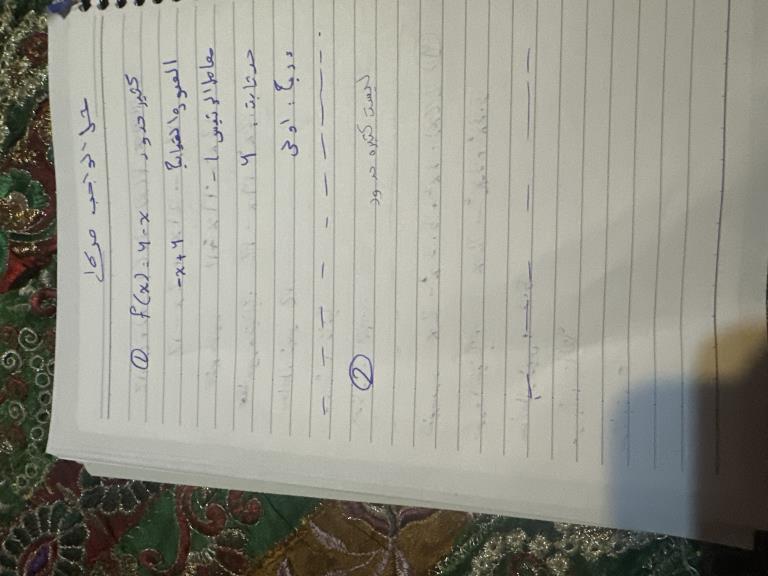 حل الواجب صـ
① f(x) = 4 - x كثير حدود
الصورة القياسية -x+4
معامل الرئيس -1
حد ثابت 4
درجة اولى
② ليست كثيرة حدود